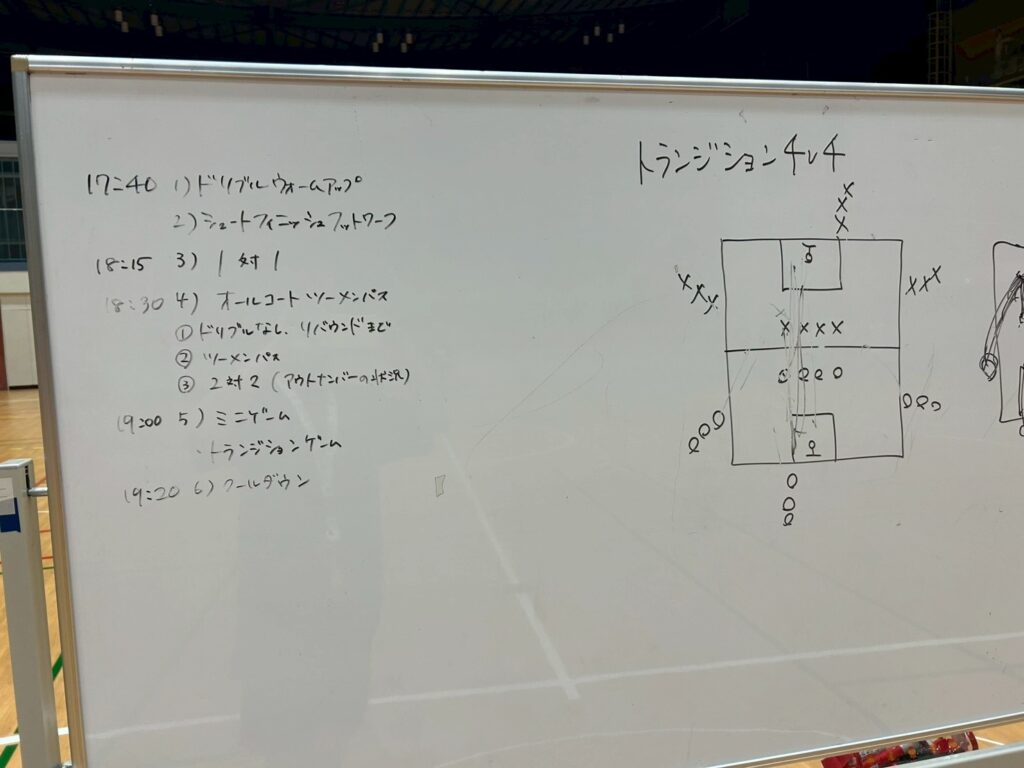 17:40 1) ドリブルウォームアップ
2) シュートフィニッシュフットワーク
18:15 3) 1対1
18:30 4) オールコートツーメンパス
① ドリブルなし、リバウンドまで
② ツーメンパス
③ 2対2 (アウトナンバーの状況)
19:00 5) ミニゲーム
・トランジションゲーム
19:20 6) クールダウン
トランジション 4v4
X
X
X
X X X
X X X
X X X X
O O O O
O O O
O O O
O
O
O